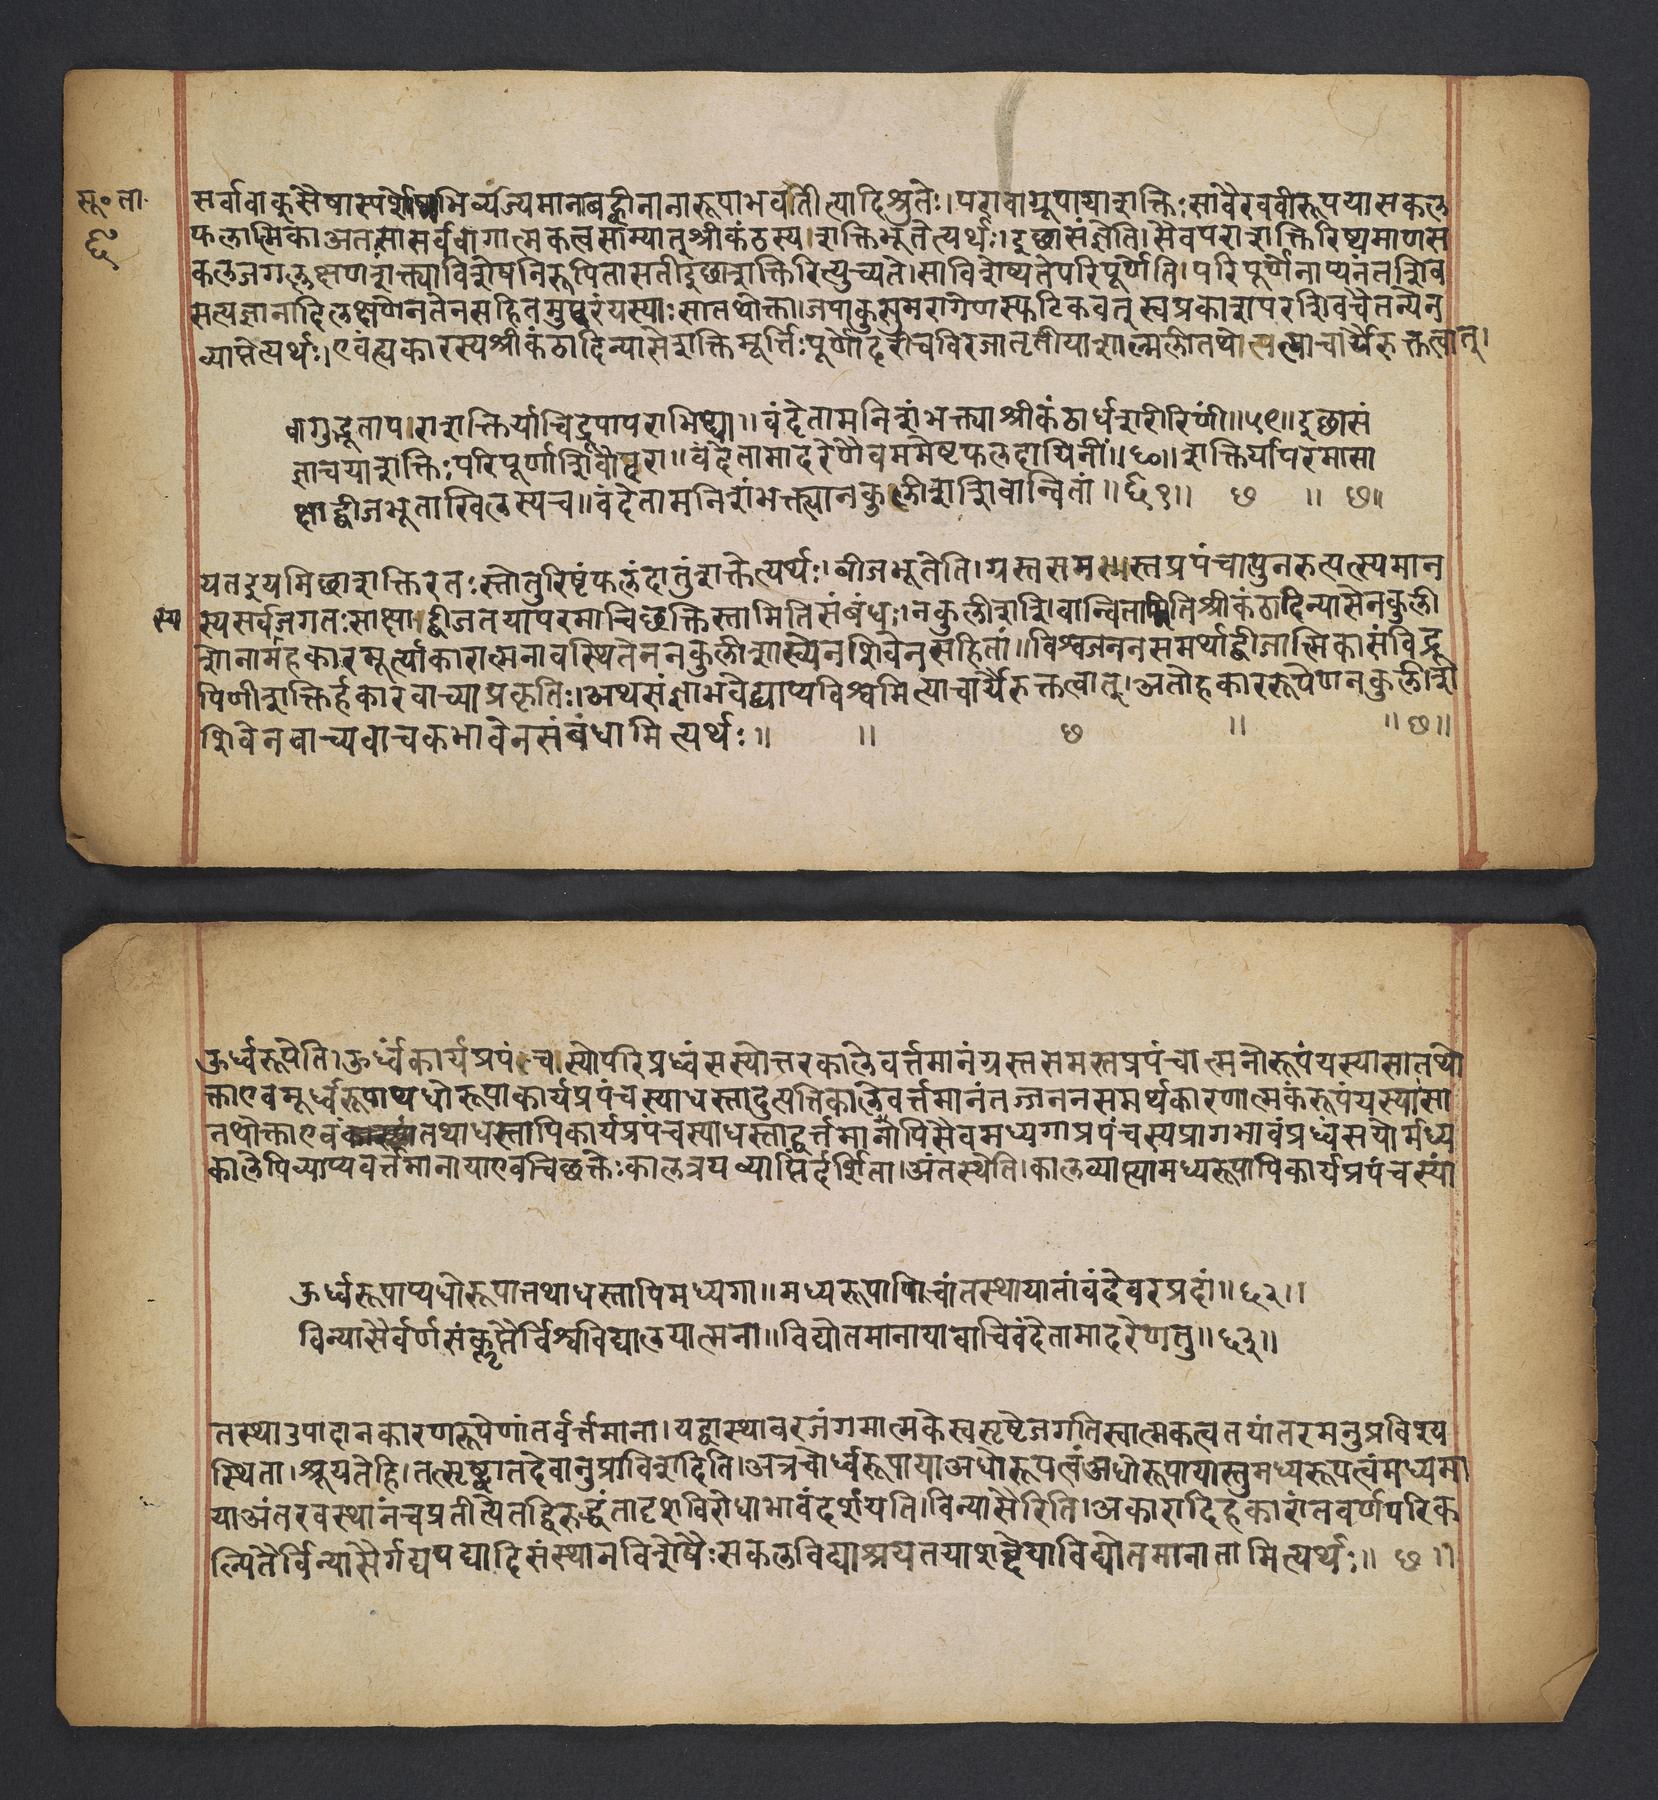 सू॰ता॰
६
सर्वावाक्सैषास्पर्शोष्मभिर्व्यज्यमानाबह्वीनानारूपाभवतीत्यादिश्रुतेः।परावाग्रूपायाशक्तिःसावैरववीरूपयासकल
फलात्मिका।अतःसासर्ववागात्मकत्वसाम्यात्श्रीकंठस्यशक्तिर्भूतेत्यर्थः।इछासंज्ञेति।सैवपराशक्तिरिष्यमाणस
कलजगल्लक्षणशक्त्याविशेषनिरूपितासतीइछाशक्तिरित्युच्यते।साविशेष्यतेपरिपूर्णेति।परिपूर्णेनाप्यनंतशिव
सत्यज्ञानादिलक्षणेनतेनसहितमुपुरंयस्याःसातथोक्ता।जपाकुसुमरागेणस्फटिकवत्स्वप्रकाशपरशिवचैतन्येन
व्याप्तेत्यर्थः।एवंह्यकारस्यश्रीकंठादिन्यासेशक्तिमूर्त्तिःपूर्णोदरीचविरजातृतीयाशाल्मलीतथेत्यत्याचार्यैरुक्तत्वात्।
वागुद्भूतापराशक्तिर्याचिद्रूपापराभिधा॥वंदेतामनिशंभक्त्याश्रीकंठार्धशरीरिणीं॥५९॥इछासं
ज्ञाचयाशक्तिःपरिपूर्णाशिवोदरा॥वंदेतामादरेणैवममेष्टफलदायिनीं॥६०॥शक्तिर्यापरमासा
क्षाद्बीजभूताखिलस्यच॥वंदेतामनिशंभक्त्यानकुलीशशिवान्वितां॥६१॥ छ ॥ छ॥
यतइयमिछाशक्तिरतःस्तोतुरिष्टंफलंदातुंशक्तेत्यर्थः।बीजभूतेति।ग्रस्तसमस्तप्रपंचापुनरुत्पत्स्यमान
स्य
स्यसर्वजगतःसाक्षाद्बीजतयापरमाचिछक्तिस्तामितिसंबंधः।नकुलीशशिवान्वितामितिश्रीकंठादिन्यासेनकुली
शोनामहकारमूर्त्याकारात्मनावस्थितेननकुलीशाख्येनशिवेनसहितां॥विश्वजननसमर्थाद्बीजात्मिकासंविद्रू
पिणीशक्तिर्हकारवाच्याप्रकृतिः।अथसंज्ञाभवेद्व्याप्यविश्वमित्याचार्यैरुक्तत्वात्।अतोहकाररूपेणनकुलीशे
शिवेनवाच्यवाचकभावेनसंबंधामित्यर्थः॥ ॥ छ ॥ ॥छ॥
ऊर्ध्वरूपेति।ऊर्ध्वंकार्यप्रपंचस्योपरिप्रध्वंसस्योत्तरकालेवर्त्तमानंग्रस्तसमस्तप्रपंचात्मनोरूपंयस्यासातथो
क्ताएवमूर्ध्वरूपाप्यधोरूपाकार्यप्रपंचस्याधस्तादुत्पत्तिकालेवर्त्तमानंतज्जननसमर्थकारणात्मकंरूपंयस्यासा
तथोक्ताएवंतथाधस्तापिकार्यप्रपंचस्याधस्ताद्वर्त्तमानापिसैवमध्यगाप्रपंचस्यप्रागभावंप्रध्वंसयोर्मध्य
कालेपिव्याप्यवर्त्तमानायाएवचिछक्तेःकालत्रयव्याप्तिर्दर्शिता।अंतस्थेति।कालव्याप्त्यामध्यरूपापिकार्यप्रपंचस्यां
ऊर्ध्वरूपाप्यधोरूपातथाधस्तापिमध्यगा॥मध्यरूपापिचांतस्थायातांवंदेवरप्रदां॥६२॥
विन्यासैर्वर्णसंकॢप्तैर्विश्वविद्यालयात्मना॥विद्योतमानायावाचिवंदेतामादरेणतु॥६३॥
तस्थाउपादानकारणरूपेणांतर्वर्त्तमाना।यद्वास्थावरजंगमात्मकेस्वसृष्टेजगतिस्वात्मकत्वतयांतरमनुप्रविश्य
स्थिता।श्रूयतेहि।तत्सृष्ट्वातदेवानुप्राविशदिति।अत्रचोर्ध्वरूपायाअधोरूपत्वंअधोरूपायास्तुमध्यरूपत्वंमध्यमा
याअंतरवस्थानंचप्रतीत्यैतद्विरुद्धंतादृशविरोधाभावंदर्शयति।विन्यासैरिति।अकारादिहकारांतवर्णपरिक
ल्पितैर्विन्यासैर्गद्यपद्यादिसंस्थानविशेषैःसकलविद्याश्रयतयाशब्देयाविद्योतमानातामित्यर्थः॥ छ॥